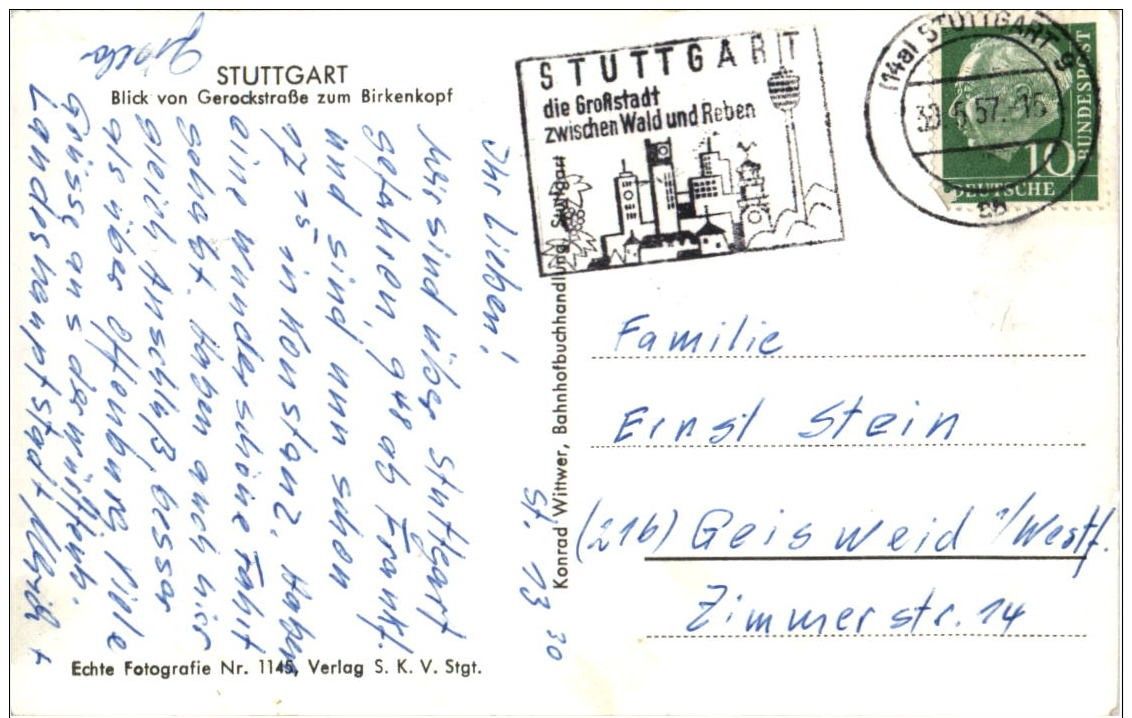 STUTTGART
Blick von Gerockstraße zum Birkenkopf
St. 13 30
Ihr Lieben!
Wir sind über Stuttgart
gefahren, 9⁴⁸ ab Frankf.
und sind nun schon
in Konstanz. Haben
eine wunderschöne Fahrt
gehabt. Haben auch hier
gleich Anschluß, besser
als über Offenburg. Viele
Grüsse aus der württemb.
Landeshauptstadt
Echte Fotografie Nr. 1145, Verlag S. K. V. Stgt.
Konrad Wittwer, Bahnhofbuchhandlung, Stuttgart
STUTTGART
die Großstadt
zwischen Wald und Reben
(14a) STUTTGART 9
57.-15
DEUTSCHE
BUNDESPOST
10
Familie
Ernst Stein
(21b) Geisweid i/Westf.
Zimmerstr. 14